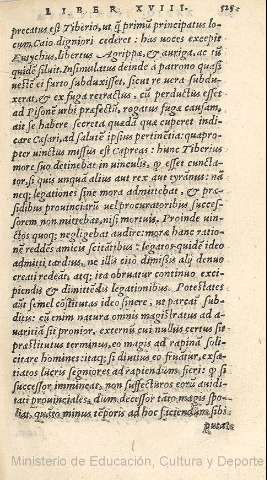 LIBER XVIII. 525
precatus est Tiberio, ut q̃ primũ principatus lo-
cum, Caio digniori cederet: has voces excepit
Eutychus, libertus Agrippæ, & auriga, ac tũ
quidẽ siluit. Insimulatus deinde à patrono quasi
vestẽ ei furto subduxisset, sicut re uera subdu-
xerat, & ex fuga retractus, cũ perductus esset
ad Pisonẽ urbi præfectũ, rogatus fugæ causam,
ait se habere secreta quædã quæ cuperet indi-
care Cæsari, ad salutẽ ipsius pertinẽtia: quapro-
pter uinctus missus est Capreas: hunc Tiberius
more suo detinebat in uinculis, q̃ esset cunctа-
tor, si quis unquã alius aut rex aut tyrãnus: nã
neq; legationes sine mora admittebat, & præ-
sidibus prouinciarũ uel procuratoribus succes-
sorem non mittebat, nisi mortuis. Proinde uin-
ctos quoq; negligebat audire: moræ hanc ratio-
nẽ reddẽs amicis scitãtibus: legatos quidẽ ideo
admitti tardius, ne illis citò dimissis alij denuo
creati redeãt, atq; ita obruatur continuo exci-
piendis & dimittẽdis legationibus. Potestates
aũt semel cõstitutas ideo sinere, ut parcat subdi-
tis: eũ enim natura omnis magistratus ad a-
uaritiã sit pronior, externũ cui nullus certus sit
præstitutus terminus, eo magis ad rapinã soli-
citare homines: itaq; si diutius eo fruãtur, exsa-
tiatos lucris segniores ad rapiendum fieri: q̃ si
successor immineat, non suffecturos eorũ auidi-
tati prouinciales, dum, decessor tãto magis spo-
liat, quãto minus tẽporis ad hoc faciendum sibi
putat
Ministerio de Educación, Cultura y Deporte